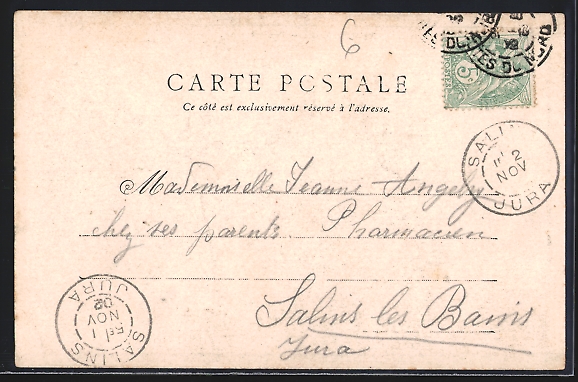 6
CARTE POSTALE
Ce côté est exclusivement réservé à l'adresse.
SALINS
2
NOV
JURA
Mademoiselle Jeanne Angely
chez ses parents. Pharmacien
Salins les Bains
Jura
SALINS
1
NOV
02
JURA